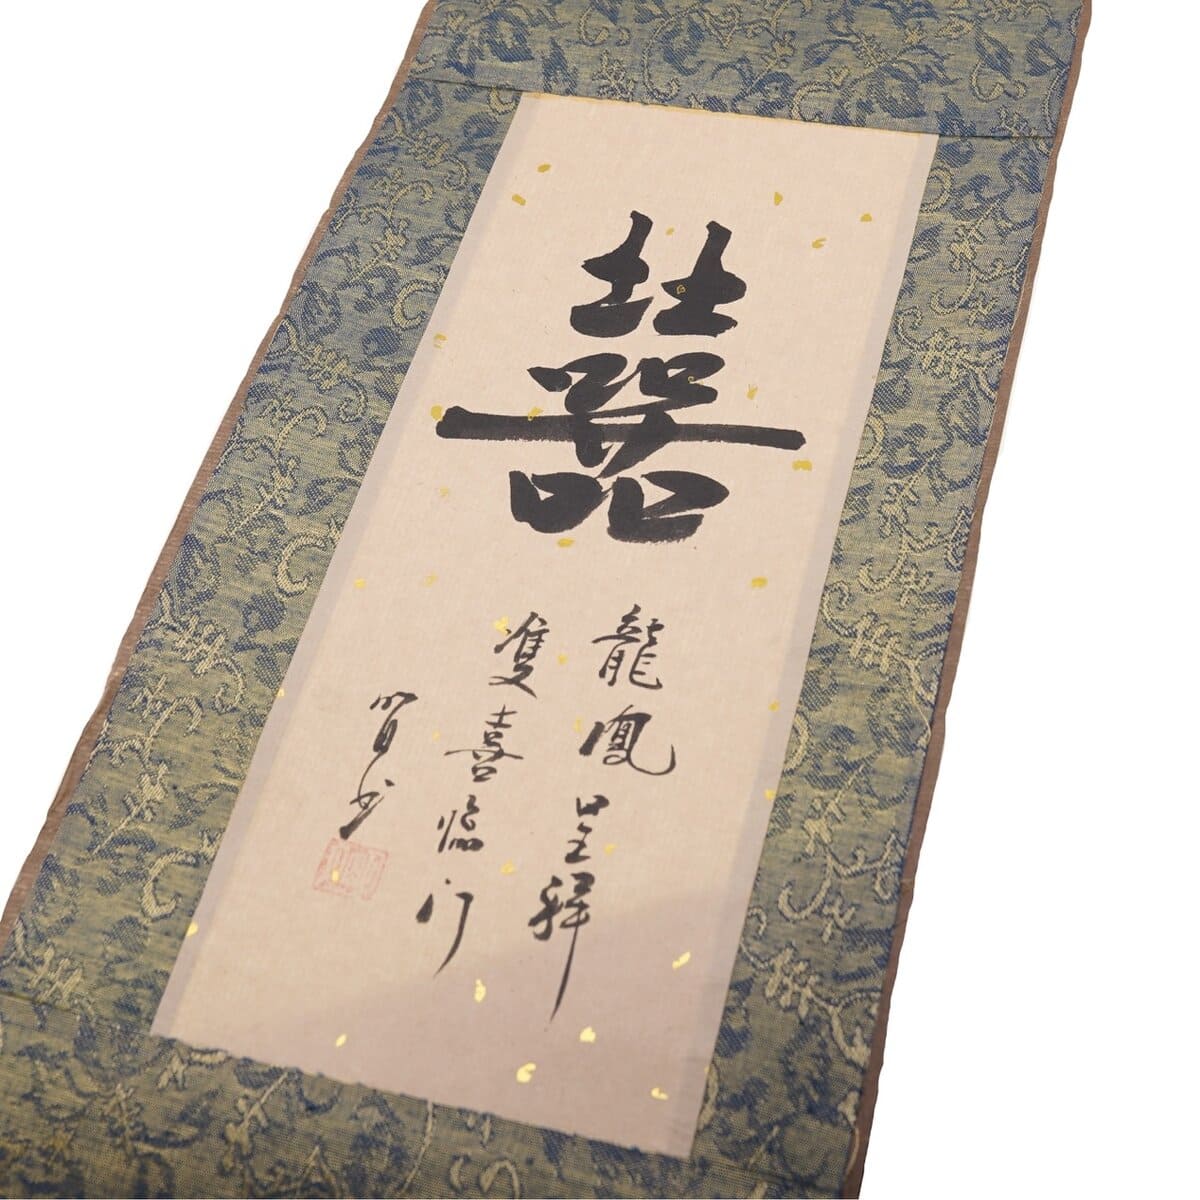 囍
龍鳳呈祥
雙喜臨门
賢书